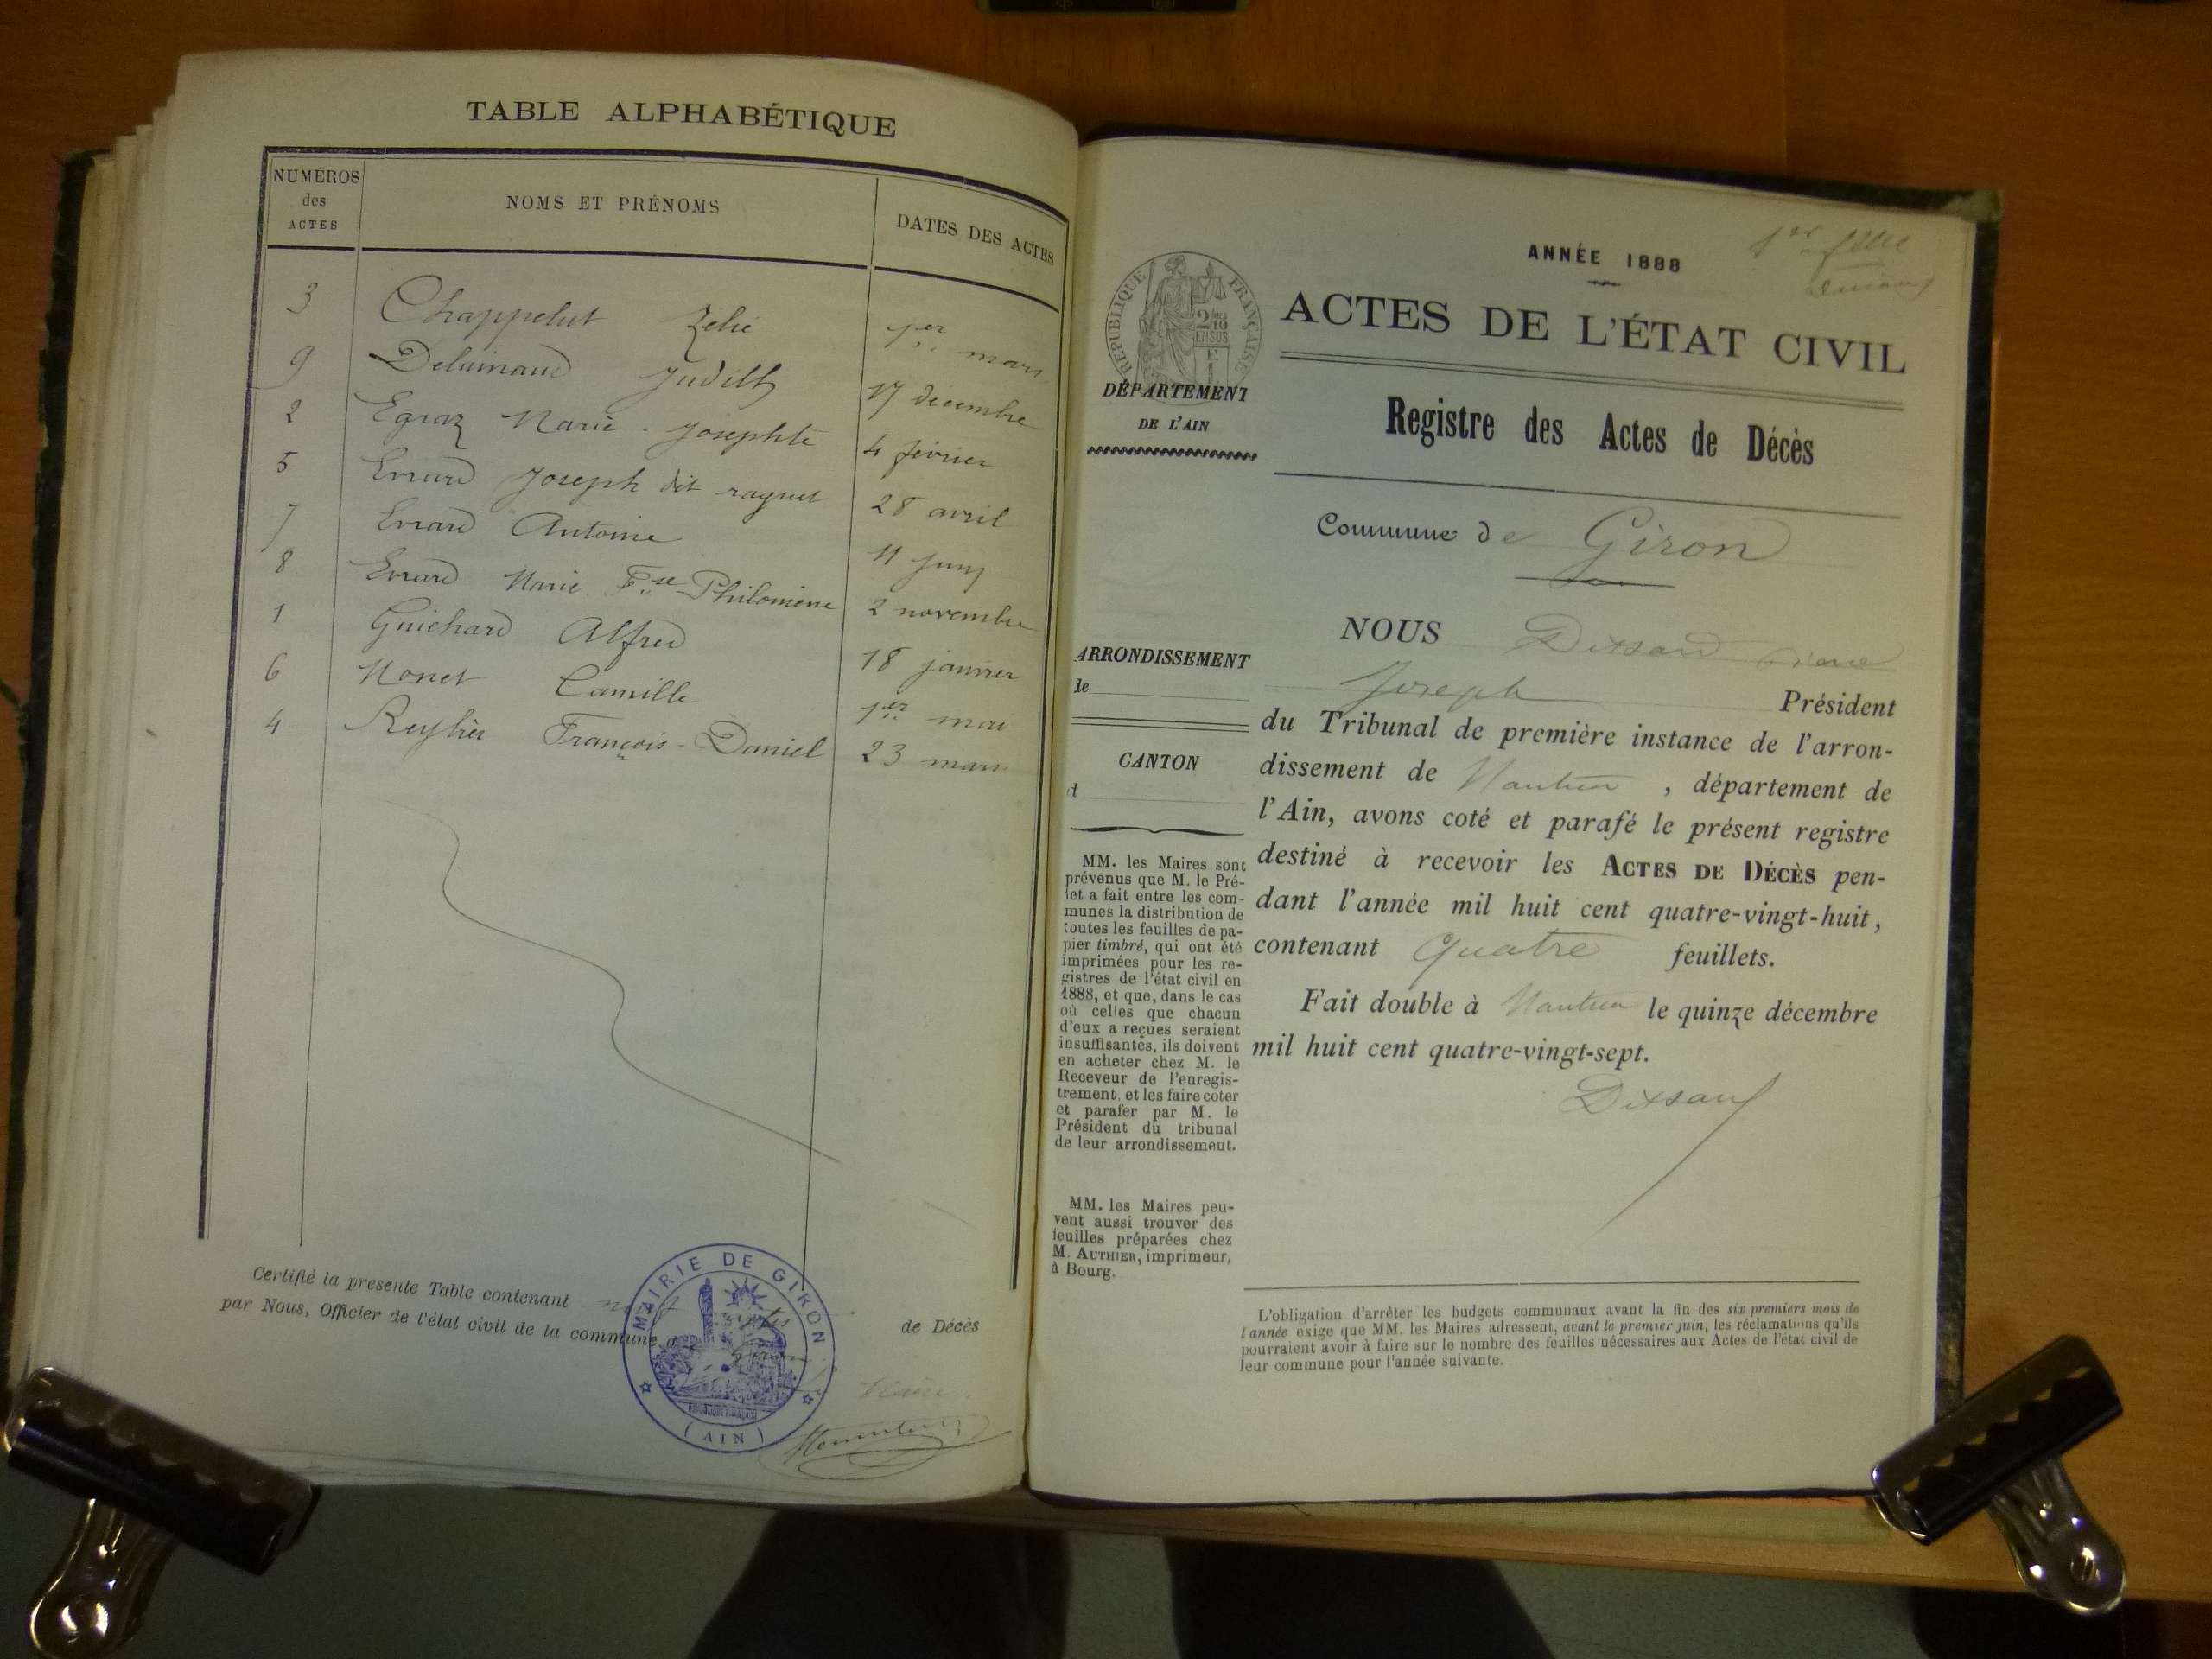 TABLE ALPHABÉTIQUE
NUMÉROS
des
ACTES
NOMS ET PRÉNOMS
DATES DES ACTES
3 Chappelut Zelie 1er mars
9 Delaimaud Judith 17 décembre
2 Egraz Marie-Josephte 4 février
5 Evrard Joseph dit raguet 28 avril
7 Evrard Antoine 11 juin
8 Evrard Marie Fse Philomène 2 novembre
1 Guichard Alfred 18 janvier
6 Monet Camille 1er mai
4 Reylier François-Daniel 23 mars
Certifié la présente Table contenant neuf actes de Décès
par Nous, Officier de l'état civil de la commune de Giron
Maire
MAIRIE DE GIRON
RÉPUBLIQUE FRANÇAISE
(AIN)
ANNÉE 1888
1er
RÉPUBLIQUE FRANÇAISE
2/10
EN SUS
ACTES DE L'ÉTAT CIVIL
DÉPARTEMENT
DE L'AIN
Registre des Actes de Décès
Commune de Giron
NOUS Dixsard
Joseph Président
du Tribunal de première instance de l'arron-
dissement de Nantua, département de
l'Ain, avons coté et parafé le présent registre
destiné à recevoir les ACTES DE DÉCÈS pen-
dant l'année mil huit cent quatre-vingt-huit,
contenant quatre feuillets.
Fait double à Nantua le quinze décembre
mil huit cent quatre-vingt-sept.
ARRONDISSEMENT
de
CANTON
d
MM. les Maires sont
prévenus que M. le Pré-
fet a fait entre les com-
munes la distribution de
toutes les feuilles de pa-
pier timbré, qui ont été
imprimées pour les re-
gistres de l'état civil en
1888, et que, dans le cas
où celles que chacun
d'eux a reçues seraient
insuffisantes, ils doivent
en acheter chez M. le
Receveur de l'enregis-
trement, et les faire coter
et parafer par M. le
Président du tribunal
de leur arrondissement.
MM. les Maires peu-
vent aussi trouver des
feuilles préparées chez
M. AUTHIER, imprimeur,
à Bourg.
L'obligation d'arrêter les budgets communaux avant la fin des six premiers mois de
l'année exige que MM. les Maires adressent, avant le premier juin, les réclamations qu'ils
pourraient avoir à faire sur le nombre des feuilles nécessaires aux Actes de l'état civil de
leur commune pour l'année suivante.